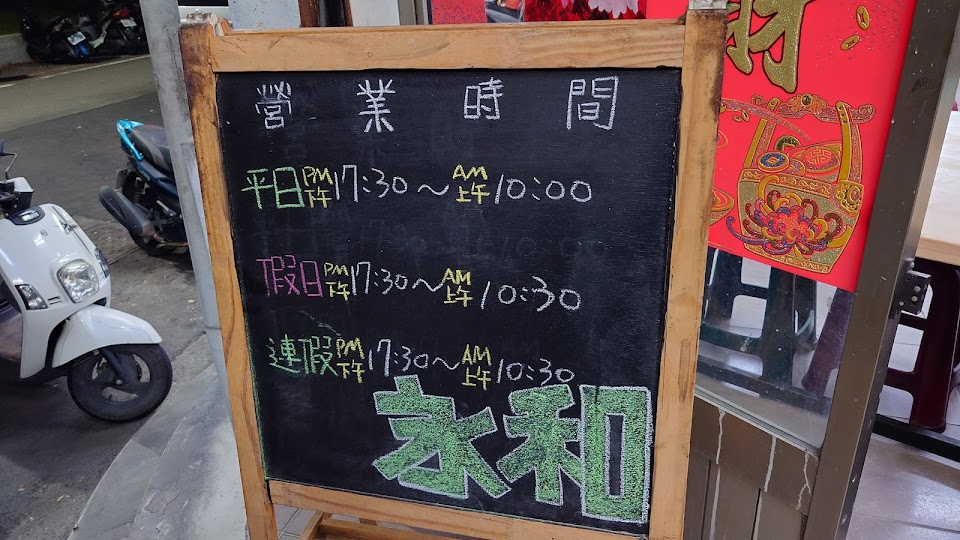 財
營業時間
平日PM下午17:30～AM上午10:00
假日PM下午17:30～AM上午10:30
連假PM下午17:30～AM上午10:30
永和